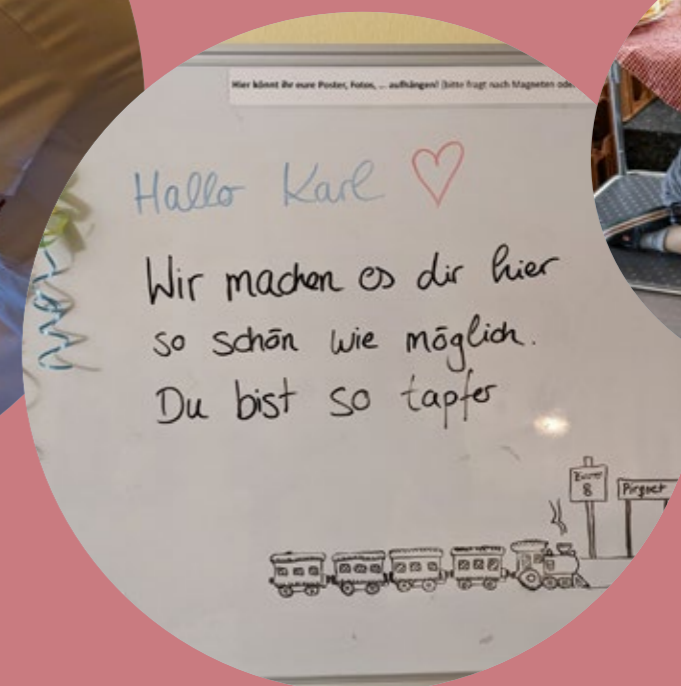 Hier könnt ihr eure Poster, Fotos, ... aufhängen! (bitte fragt nach Magneten
Hallo Karl
Wir machen es dir hier
so schön wie möglich.
Du bist so tapfer
8